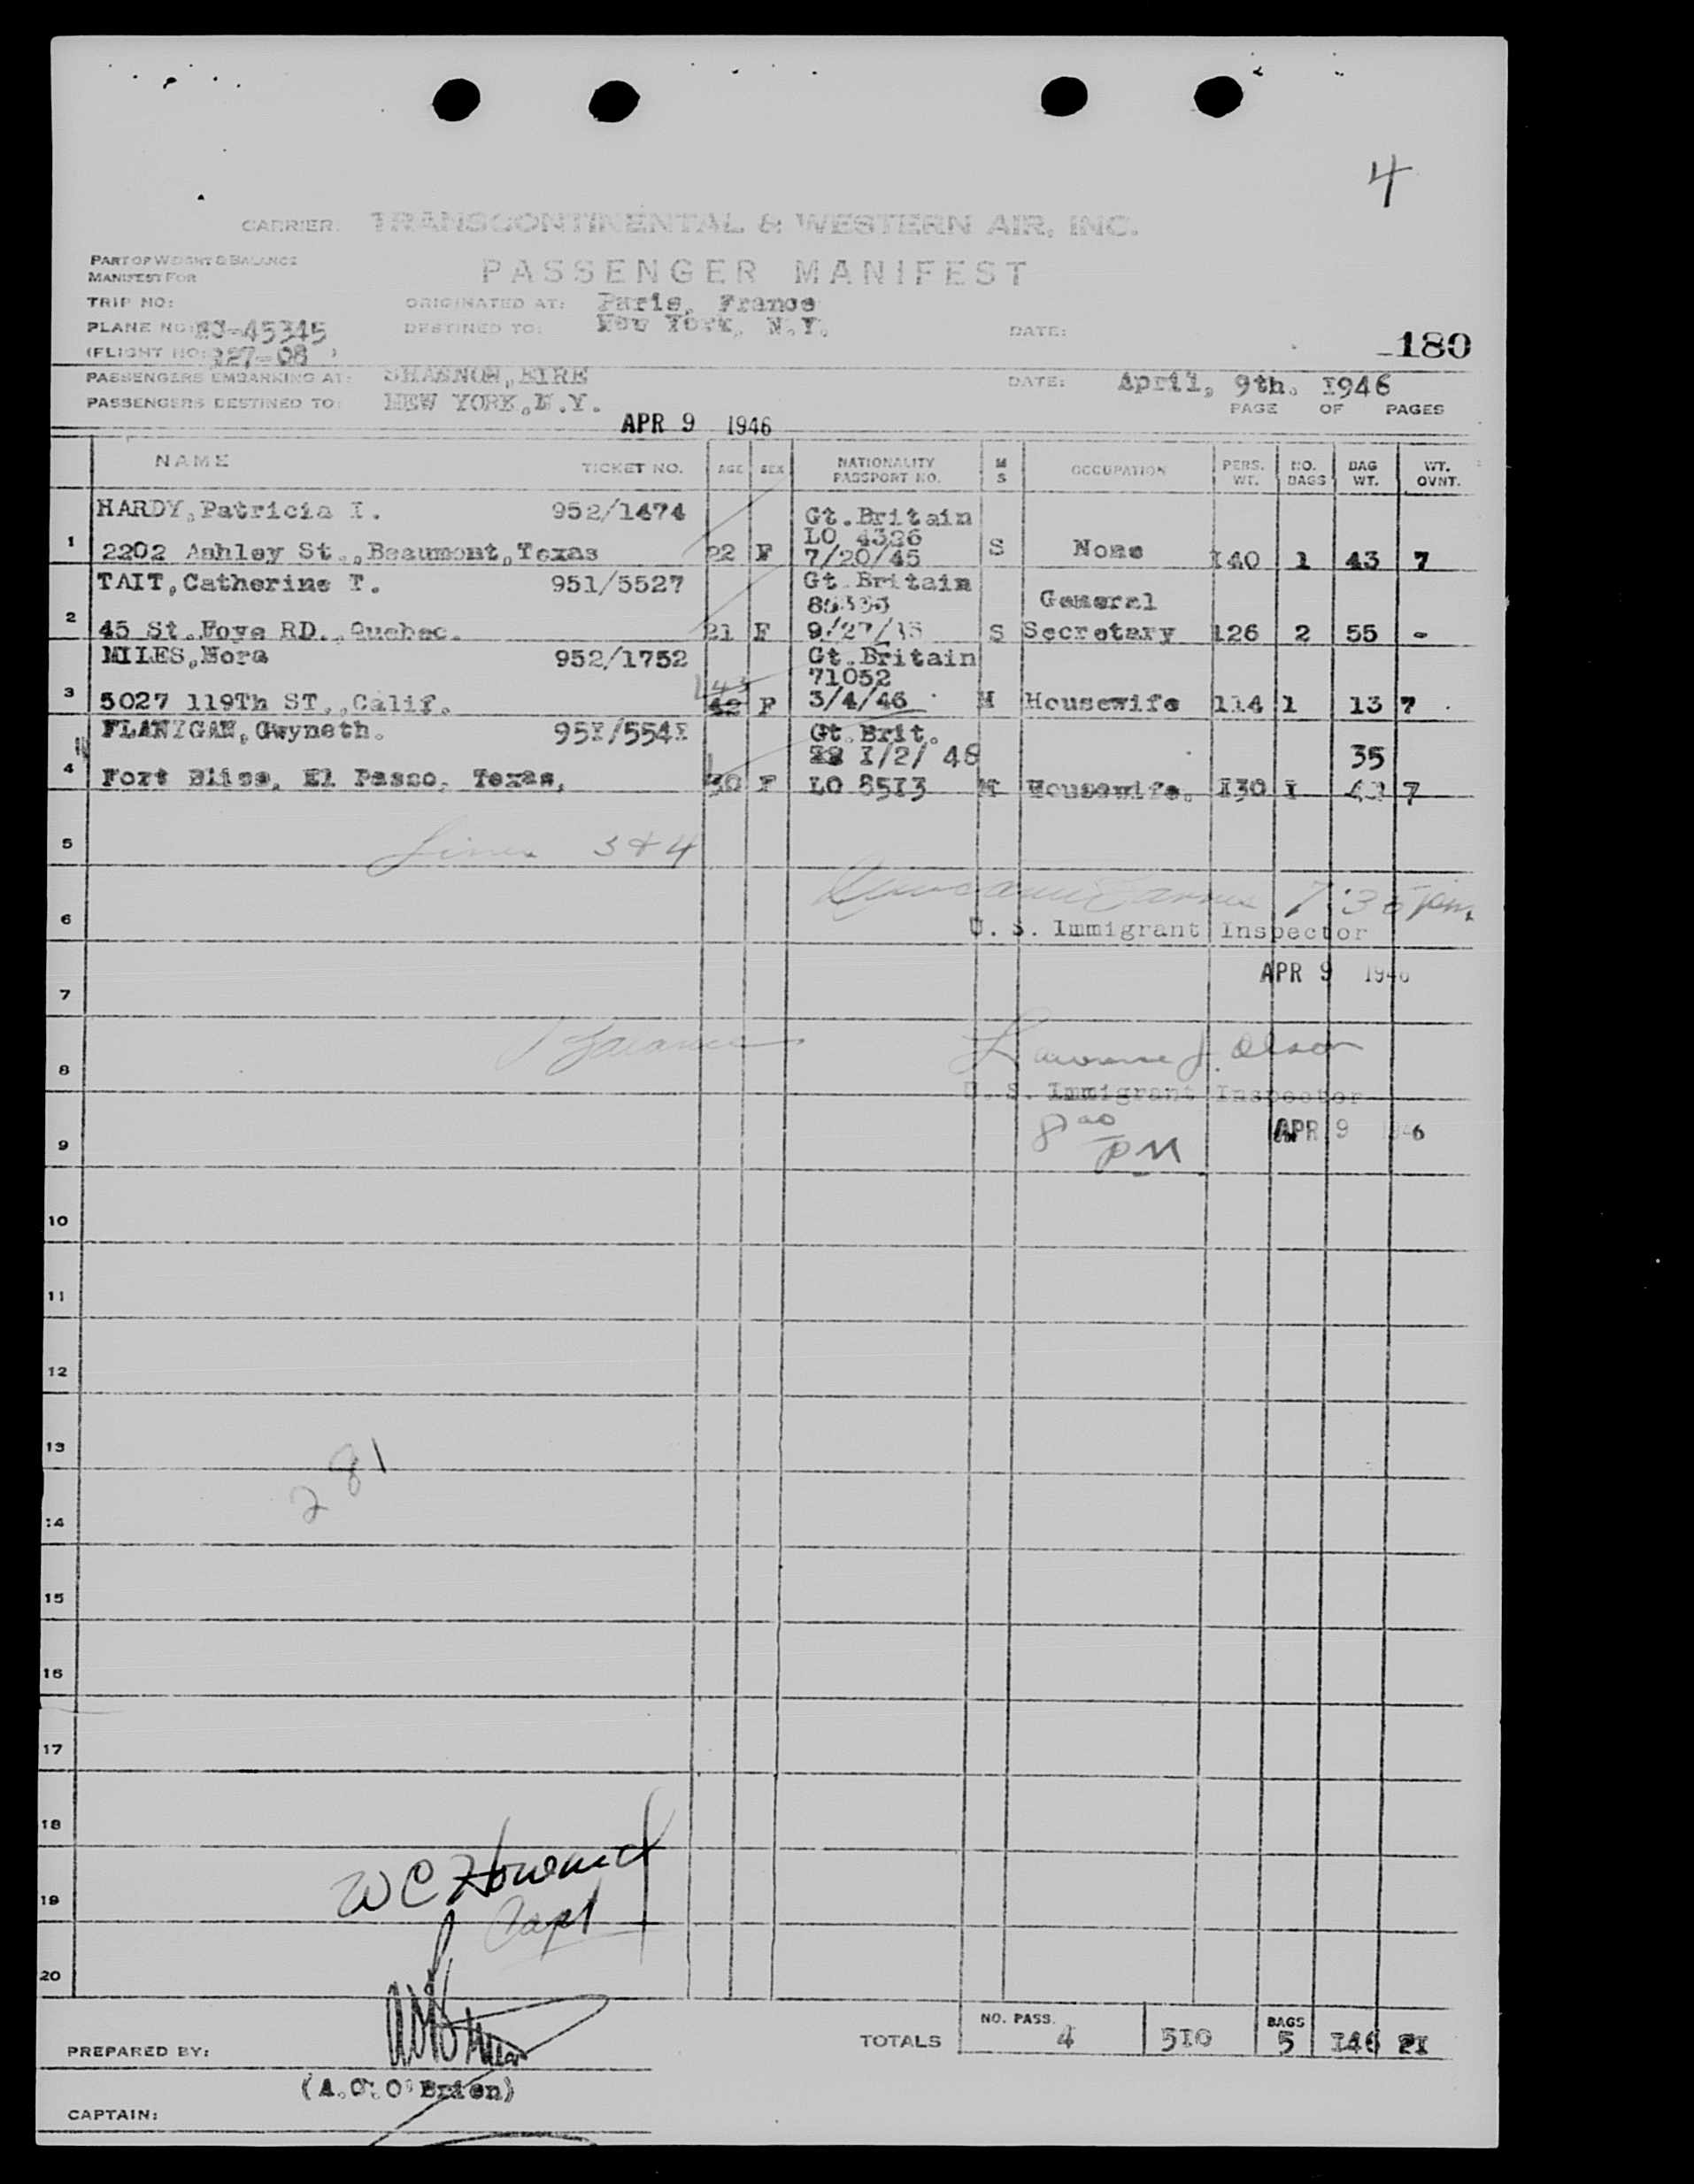 4
CARRIER: TRANSCONTINENTAL & WESTERN AIR, INC.
PART OF WEIGHT & BALANCE
MANIFEST FOR
PASSENGER MANIFEST
TRIP NO:
ORIGINATED AT: Paris, France
PLANE NO: NJ-45345
DESTINED TO: New York, N.Y.
DATE:
180
(FLIGHT NO: 927-08 )
PASSENGERS EMBARKING AT: SHANNON, EIRE
DATE: April, 9th. I946
PASSENGERS DESTINED TO: NEW YORK, N.Y.
PAGE OF PAGES
APR 9 1946
NAME TICKET NO. AGE SEX NATIONALITY PASSPORT NO. M S OCCUPATION PERS. WT. NO. BAGS BAG WT. WT. OVNT.
HARDY, Patricia I. 952/1474 Gt. Britain
LO 4326
1 2202 Ashley St., Beaumont, Texas 22 F 7/20/45 S None I40 1 43 7
TAIT, Catherine T. 951/5527 Gt Britain
General
2 45 St. Foye RD., Quebec. 21 F 9/27/45 S Secretary 126 2 55 -
MILES, Nora 952/1752 Gt. Britain
71052
43
3 5027 119Th ST., Calif. 42 F 3/4/46 M Housewife 114 1 13 7
FLANIGAN, Gwyneth. 95I/554I Gt. Brit.
I/2/ 46 35
4 Fort Bliss, El Passo, Texas, 30 F LO 85I3 M Housewife. I30 I 7
5 Lines 3 & 4
7:35 pm.
6 U. S. Immigrant Inspector
APR 9 1946
7
Balance Lawrence J. Olson
8
U. S. Immigrant Inspector
8 00 PM APR 9 1946
9
10
11
12
13
281
14
15
16
17
18
W C Howard
19
Capt
20
NO. PASS. BAGS
TOTALS 4 5I0 5 I46 2I
PREPARED BY:
(A.O. O'Brien)
CAPTAIN: